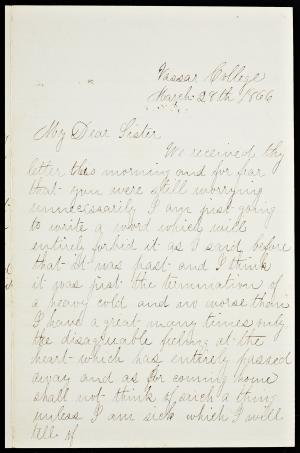 Vassar College
March 28th 1866
My Dear Sister
We received thy
letter this morning and for fear
that you were still worrying
unnecessarily I am just going
to write a word which will
entirely forbid it as I said before
that it was past and I think
it was just the termination of
a heavy cold and no worse than
I have a great many times only
the disagreeable feeling at the
heart which has entirely passed
away and as for coming home
shall not think of such a thing
unless I am sick which I will
tell if